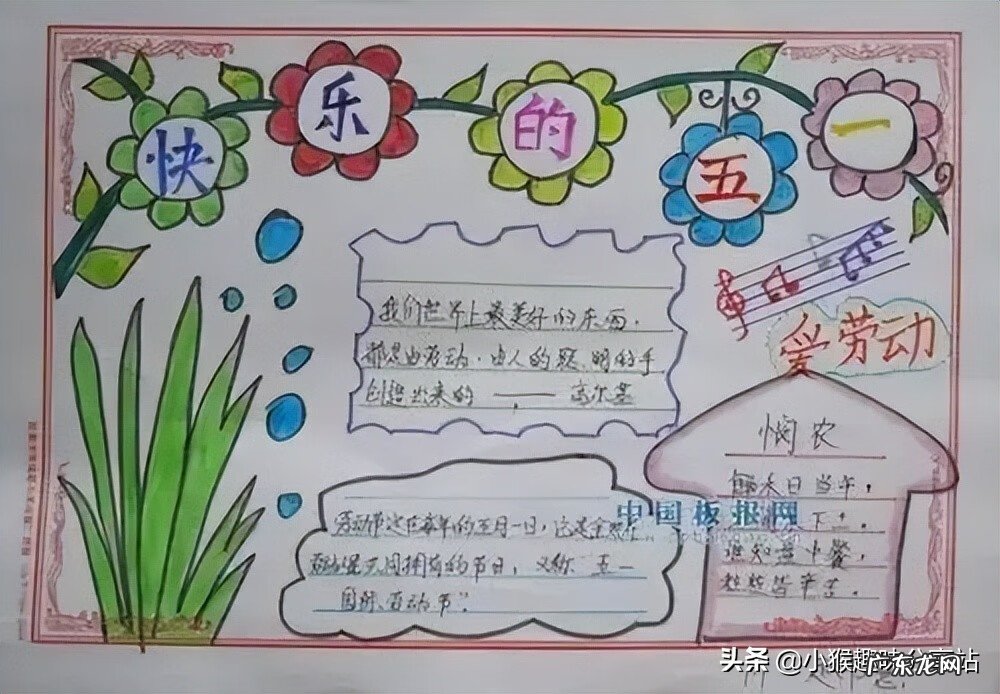 快乐的五一
爱劳动
我们世界上最美好的东西，
都是由劳动、由人的聪明的手
创造出来的 —— 高尔基
悯农
锄禾日当午，
下土。
谁知盘中餐，
粒粒皆辛苦。
中国板报网
劳动节定在每年的五月一日，它是全世
共同拥有的节日，又称"五一
国际劳动节"。
头条 @小猴趣味分享站
广东龙网